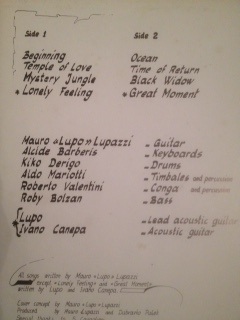 Side 1
Side 2
Beginning
Temple of Love
Mystery Jungle
* Lonely Feeling
Ocean
Time of Return
Black Widow
* Great Moment
Mauro «Lupo» Lupazzi - Guitar
Alcide Barberis - Keyboards
Kiko Derigo - Drums
Aldo Mariotti - Timbales and percussion
Roberto Valentini - Conga and percussion
Roby Bolzan - Bass
Lupo - Lead acoustic guitar
Ivano Canepa - Acoustic guitar
All songs written by Mauro «Lupo» Lupazzi
except «Lonely Feeling» and «Great Moment»
written by Lupo and Ivano Canepa
Cover concept by Mauro «Lupo» Lupazzi
Produced by Mauro Lupazzi and